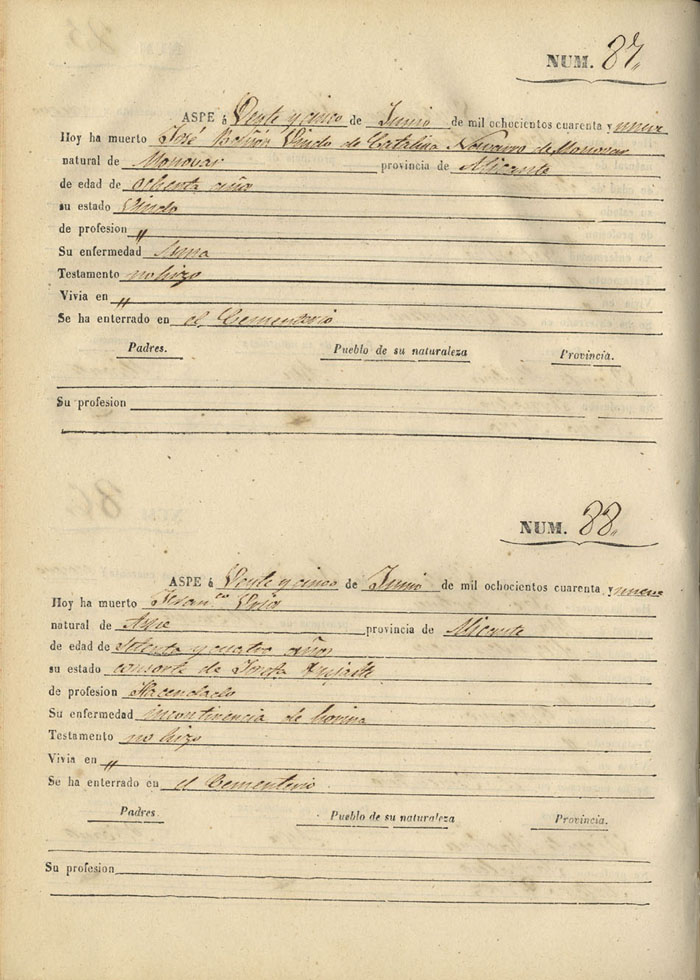 NUM. 87.
ASPE á Veyte y cinco de Junio de mil ochocientos cuarenta y nueve
Hoy ha muerto José Viudo de Catalina Navarro de Monovar
natural de Monovar provincia de Alicante
de edad de ochenta año
su estado Viudo
de profesion "
Su enfermedad Asma
Testamento no hizo
Vivia en "
Se ha enterrado en el Cementerio
Padres. Pueblo de su naturaleza Provincia.
Su profesion
NUM. 88.
ASPE á Veyte y cinco de Junio de mil ochocientos cuarenta y nueve
Hoy ha muerto Fran.co
natural de Aspe provincia de Alicante
de edad de Setenta y cuatro años
su estado consorte de Josefa
de profesion Hacendado
Su enfermedad incontinencia de
Testamento no hizo
Vivia en "
Se ha enterrado en el Cementerio
Padres. Pueblo de su naturaleza Provincia.
Su profesion